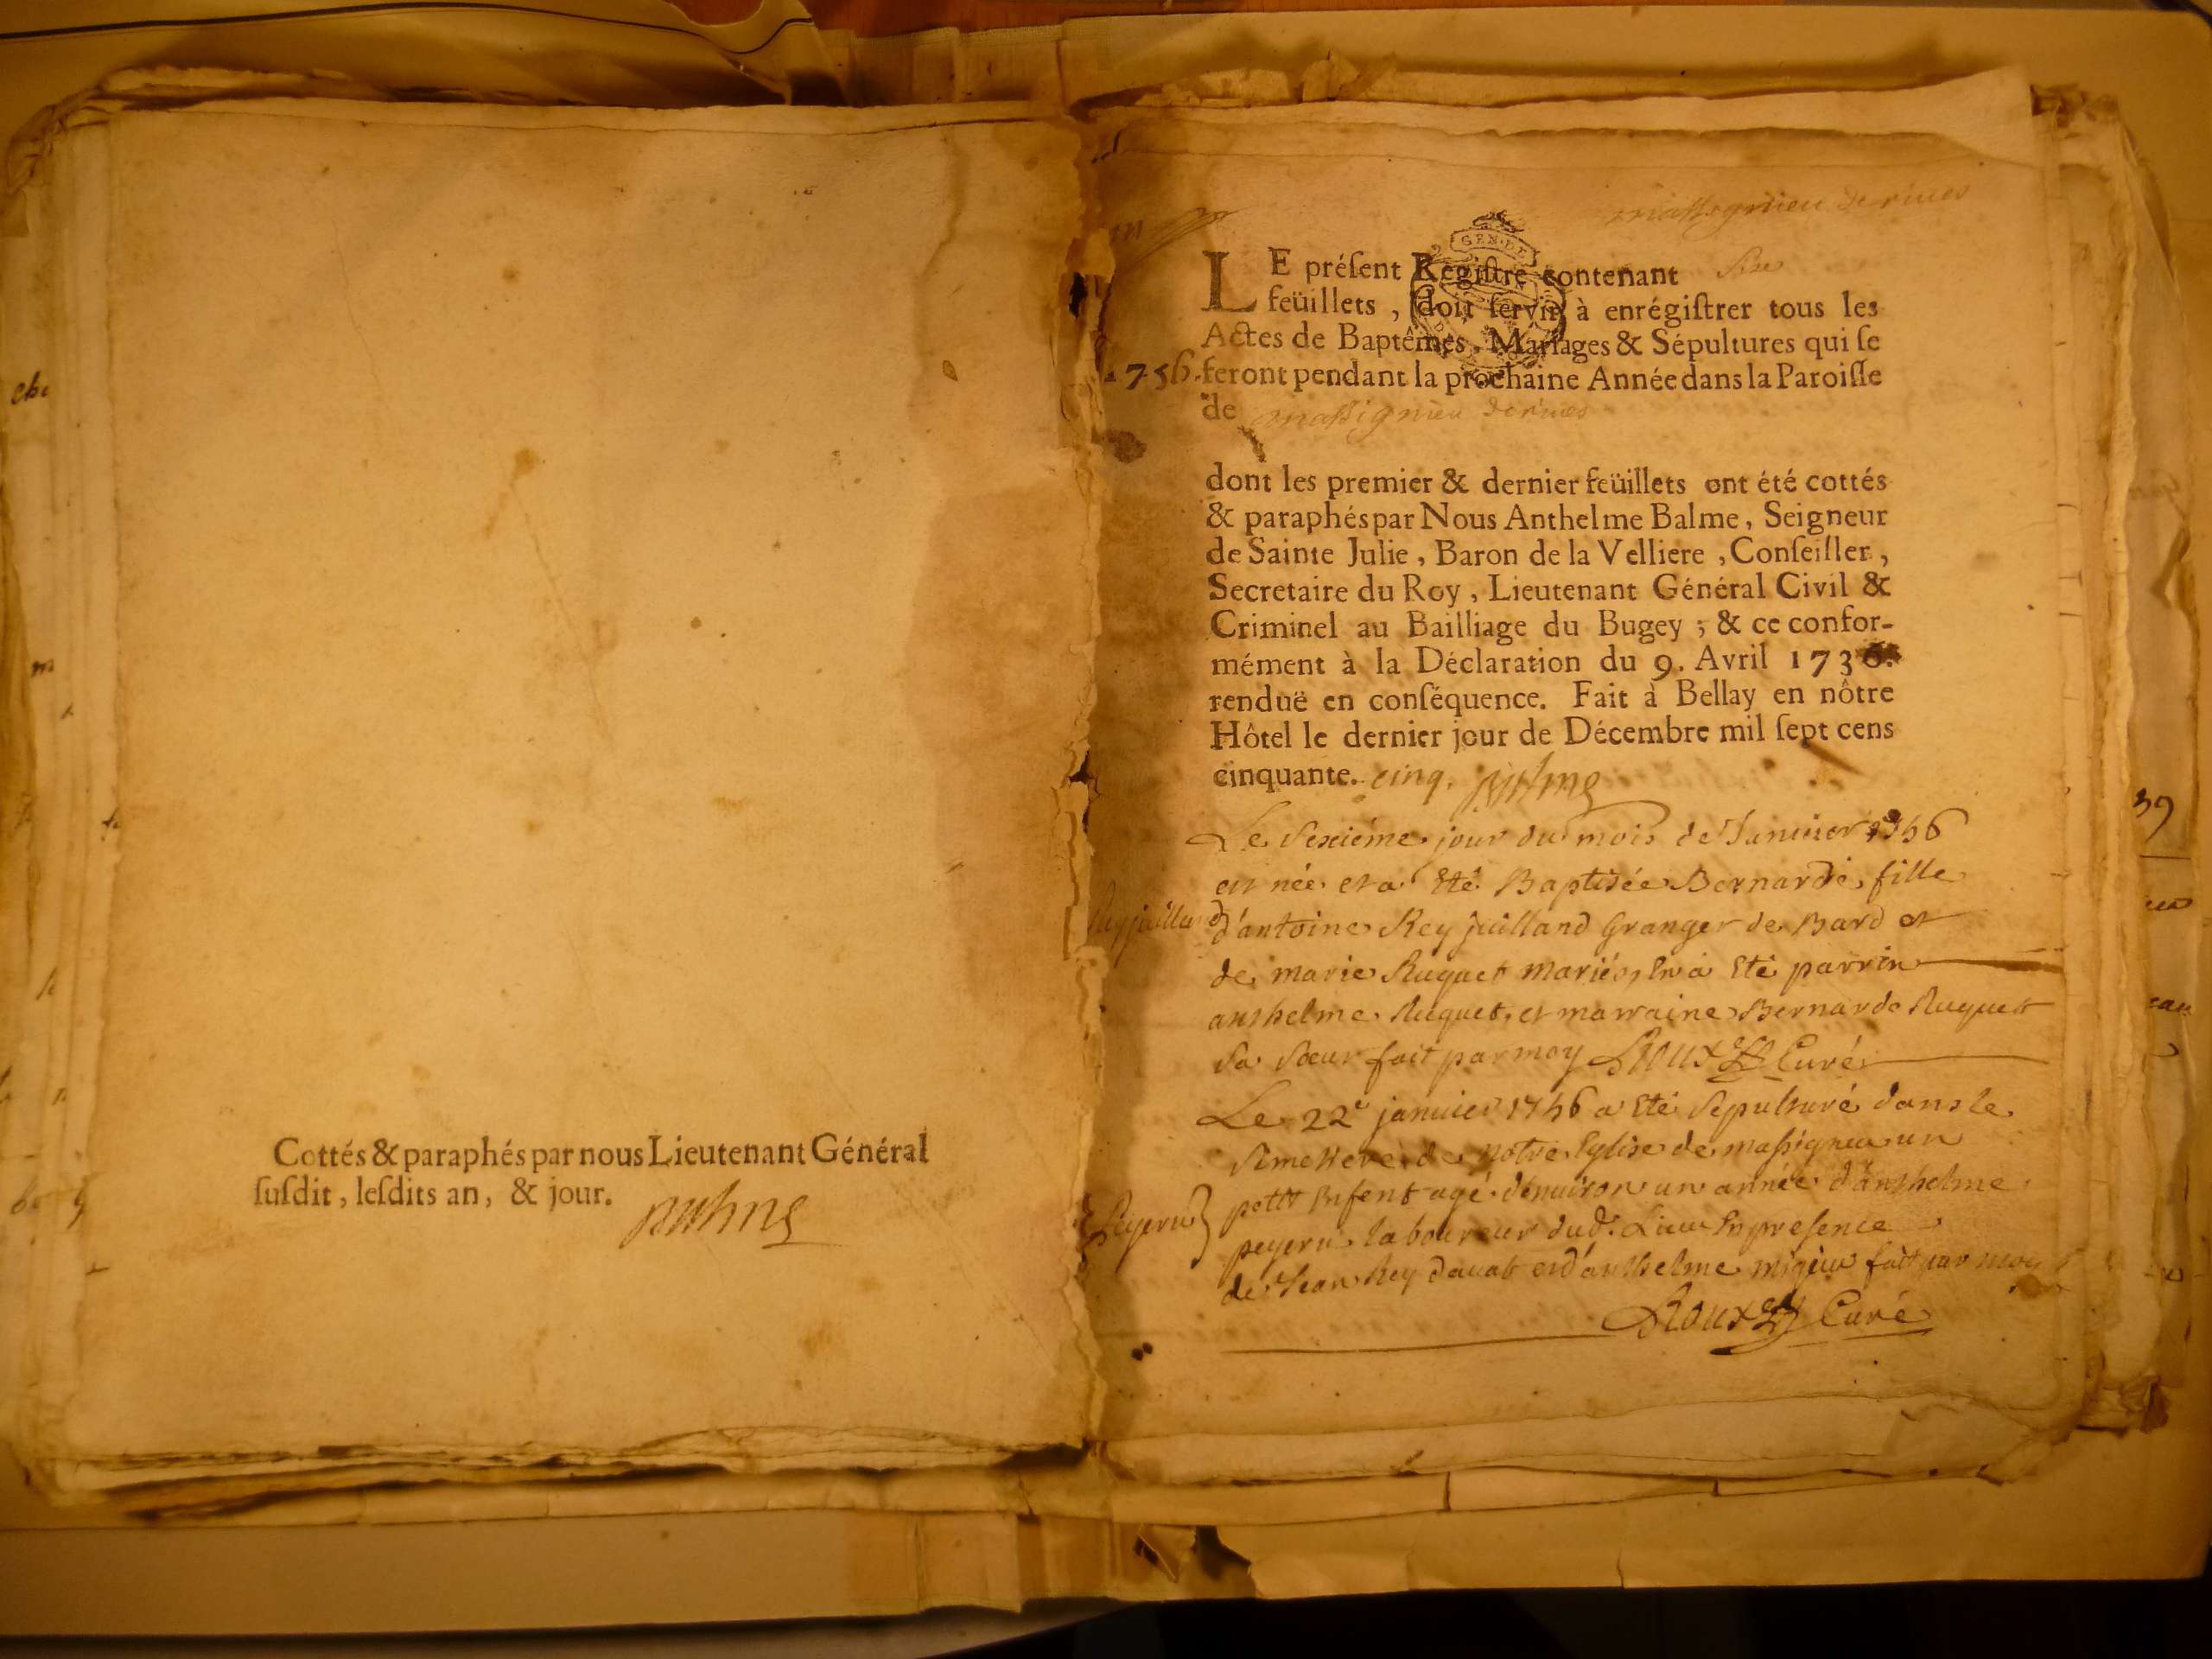 Cottés & paraphés par nous Lieutenant Général
ſuſdit, leſdits an, & jour.
massignieu de rives
GEN. DE
LE préſent Regiſtre contenant Six
feüillets, doit ſervir à enrégiſtrer tous les
Actes de Baptêmes, Mariages & Sépultures qui ſe
1756. feront pendant la prochaine Année dans la Paroiſſe
de massignieu de rives
dont les premier & dernier feüillets ont été cottés
& paraphés par Nous Anthelme Balme, Seigneur
de Sainte Julie, Baron de la Velliere, Conſeiller,
Secretaire du Roy, Lieutenant Général Civil &
Criminel au Bailliage du Bugey; & ce confor-
mément à la Déclaration du 9. Avril 1736.
renduë en conſéquence. Fait à Bellay en nôtre
Hôtel le dernier jour de Décembre mil ſept cens
cinquante. cinq.
Le Sexiéme jour du mois de Janvier 1756
est née et a Eté Baptisée Bernarde fille
Rey juilland
d'antoine Rey juilland Granger de Bard et
de marie Ruquet mariés, En a Eté parrin
anthelme Ruquet, et marraine Bernarde Ruquet
Sa Sœur fait par moy Roux Curé
Le 22e janvier 1756 a Eté Sepulturé dans le
Simettere de notre Eglise de massigneu un
Peyeru
petit Enfent agé d'environ un année d'anthelme
peyeru laboureur dud. Lieu En presence
de Jean Rey davat et d'anthelme migieu fait par moy
Roux Curé
39